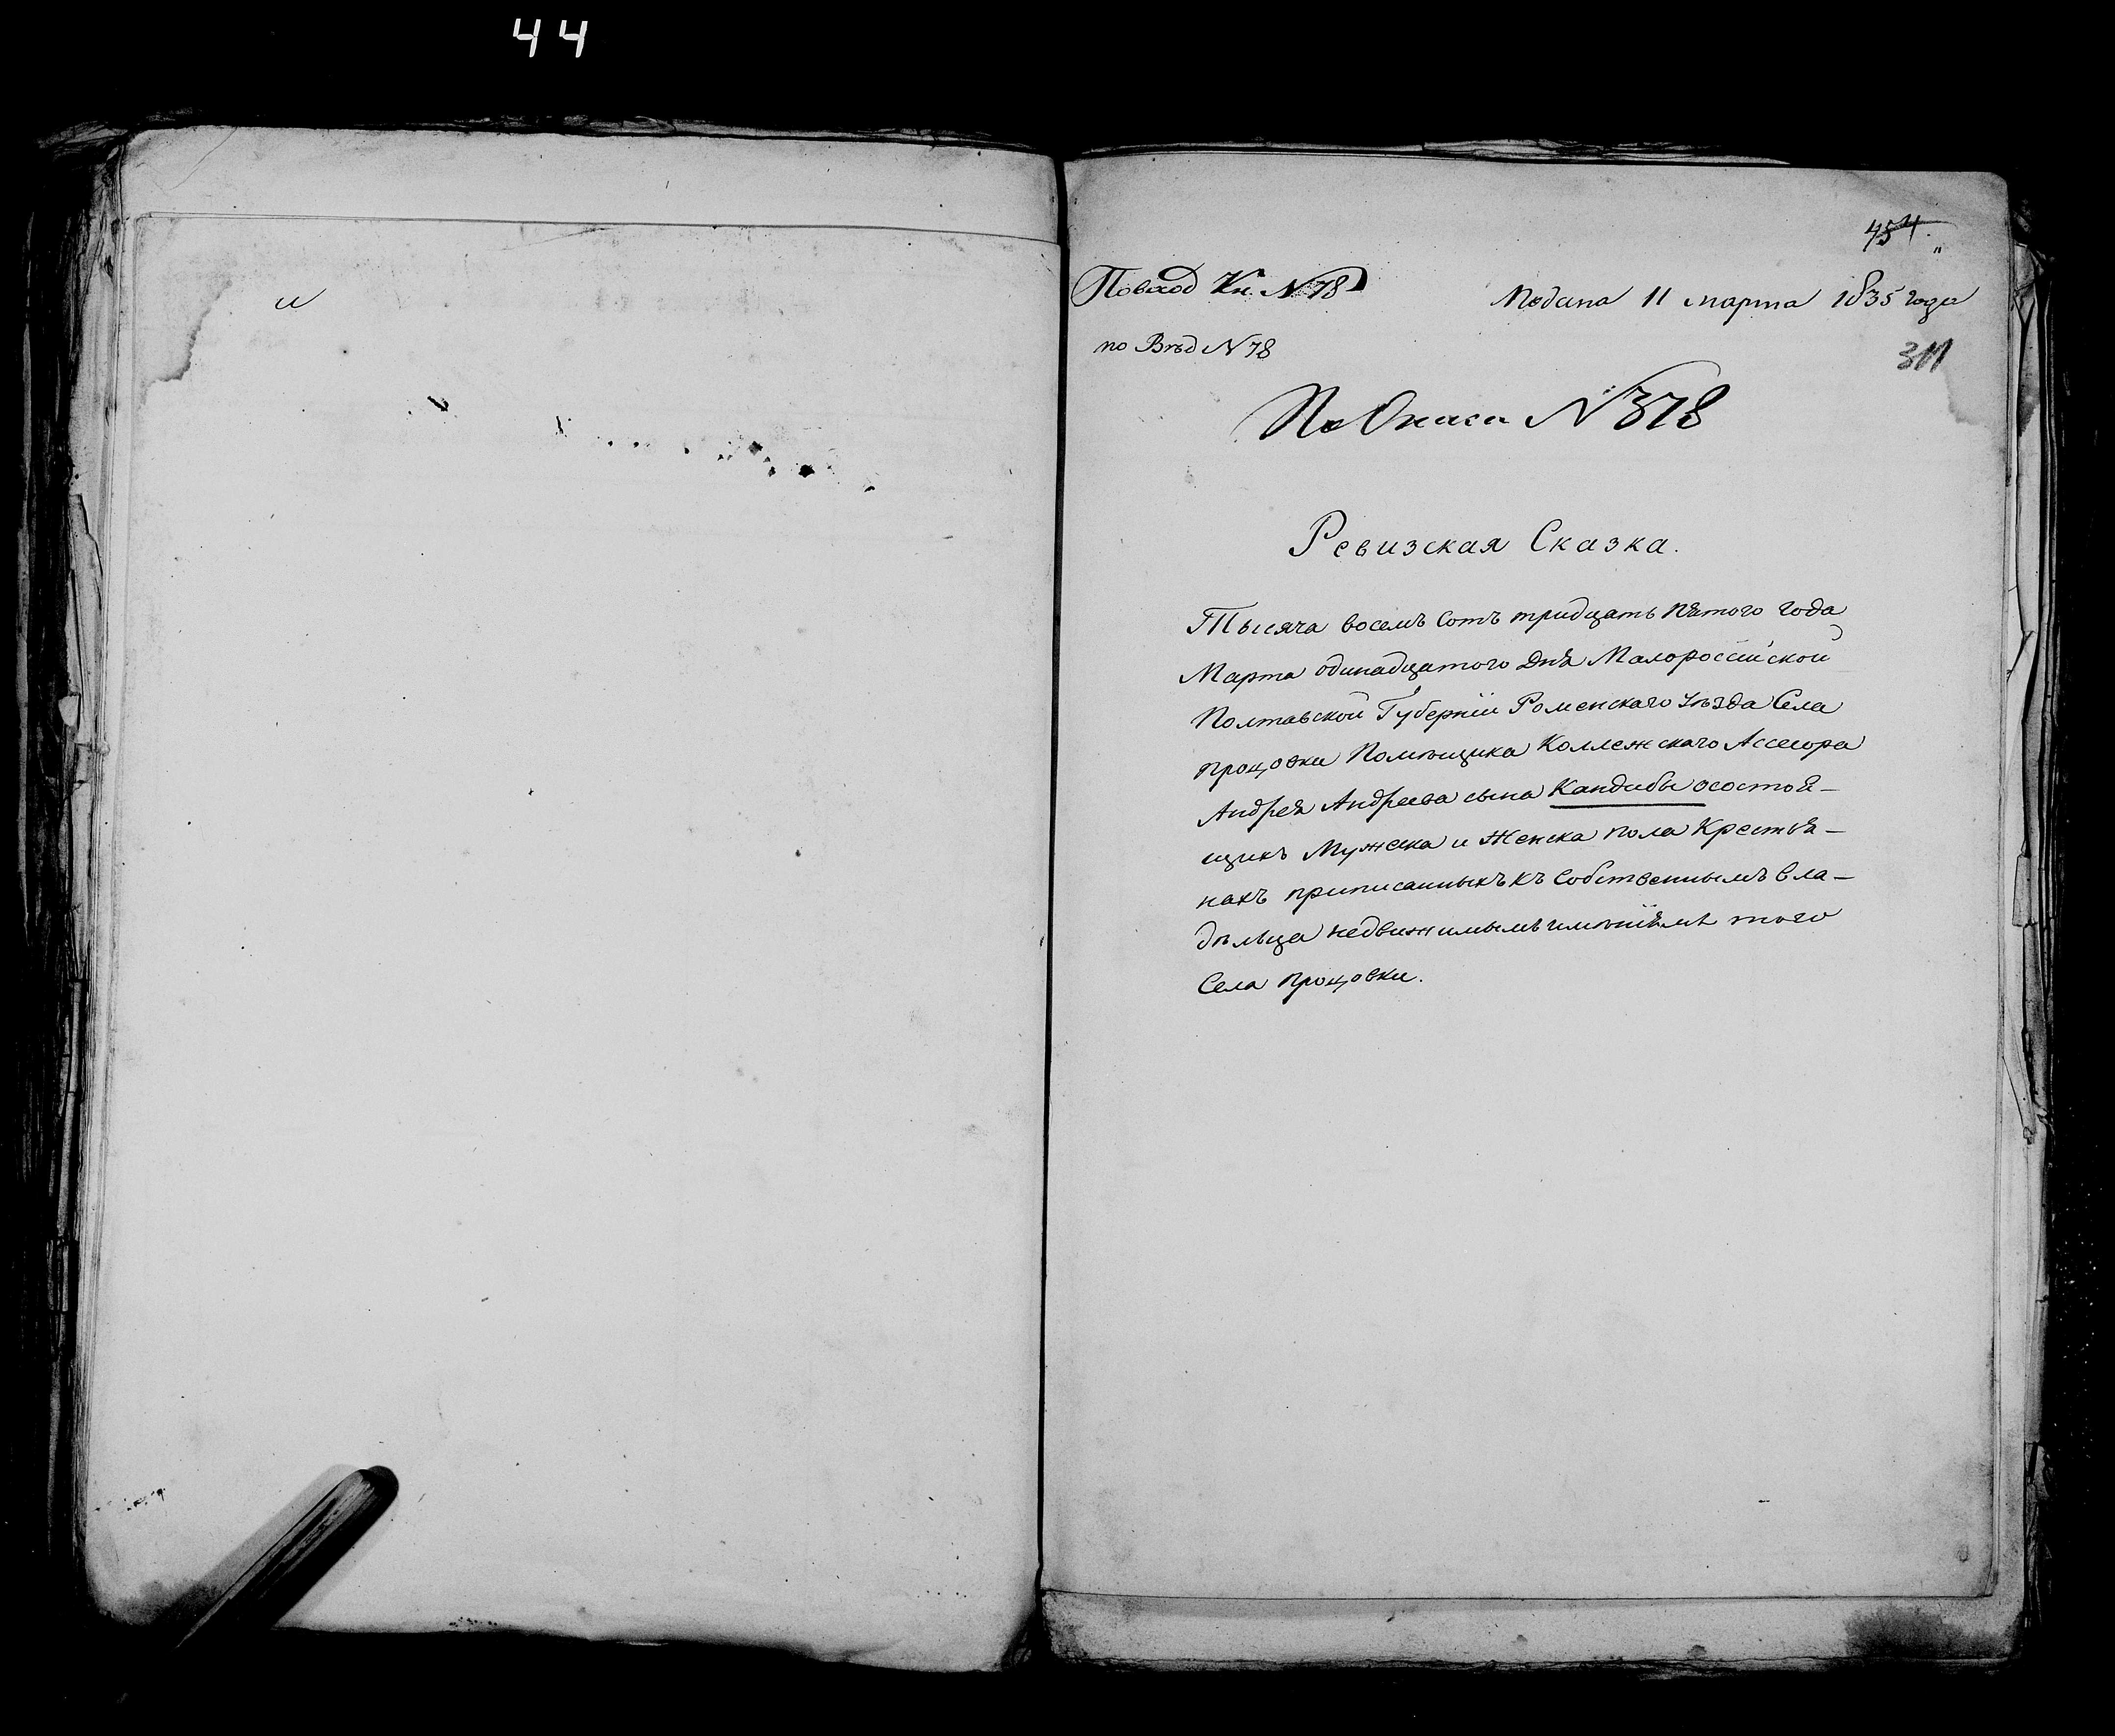 44
и
454.
Повход Кн. N 78
Подана 11 марта 1835 года
по Вѣд N 78
311
По Описи N 378
Ревизская Сказка.
Тысяча восемъ Сотъ тридцать пятого года
Марта одинадцатого дня Малороссійской
Полтавской Губерніи Роменскаго уѣзда Села
процовки Помѣщика Коллежскаго Ассесора
Андрея Андреева сына Кандибы осостоя-
щихъ Мужеска и Женска пола Крестья-
нахъ приписанныхъ къ Собственнымъ вла-
дѣльца недвижимымъ имѣніямъ того
Села процовки.